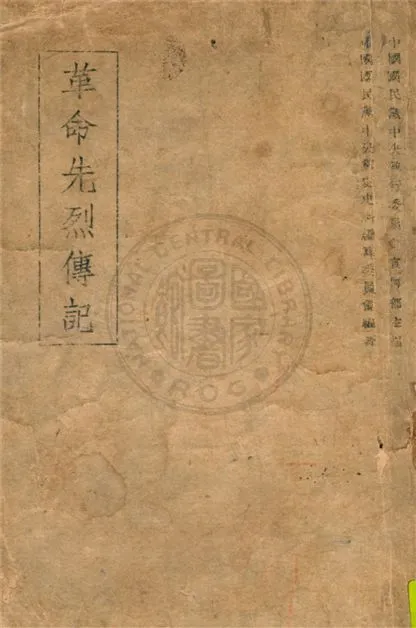 中國國民黨中央執行委員會宣傳部主編
中國國民黨中央黨史史料編纂委員會編著
革命先烈傳記
NATIONAL CENTRAL LIBRARY
R.O.C.
國家圖書館